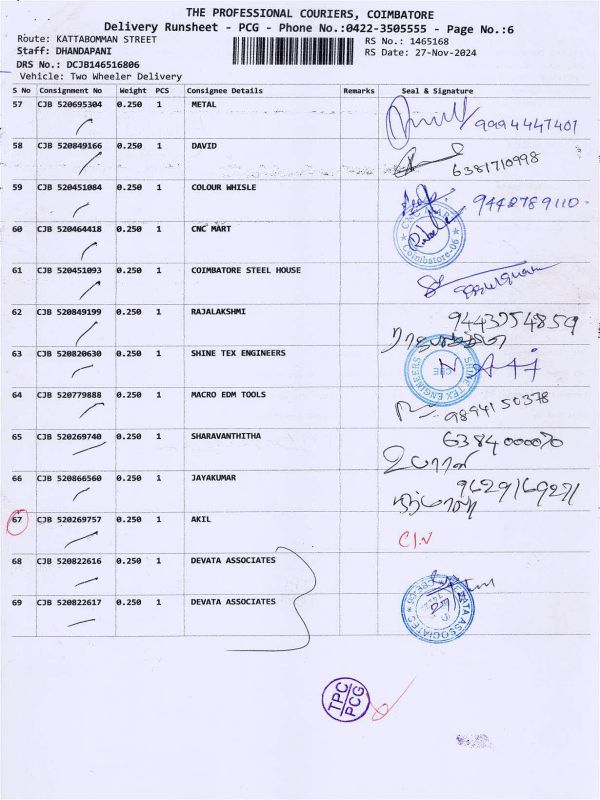 THE PROFESSIONAL COURIERS, COIMBATORE
Delivery Runsheet - PCG - Phone No.:0422-3505555 - Page No.:6
Route: KATTABOMMAN STREET
RS No.: 1465168
Staff: DHANDAPANI
RS Date: 27-Nov-2024
DRS No.: DCJB146516806
Vehicle: Two Wheeler Delivery
S No Consignment No Weight PCS Consignee Details Remarks Seal & Signature
57 CJB 520695304 0.250 1 METAL
9994447401
58 CJB 520849166 0.250 1 DAVID
6381710998
59 CJB 520451084 0.250 1 COLOUR WHISLE
9442789110
60 CJB 520464418 0.250 1 CNC MART
CNC MART
Coimbatore-06
61 CJB 520451093 0.250 1 COIMBATORE STEEL HOUSE
62 CJB 520849199 0.250 1 RAJALAKSHMI
9443754859
63 CJB 520820630 0.250 1 SHINE TEX ENGINEERS
SHINE TEX ENGINEERS
CBE
64 CJB 520779888 0.250 1 MACRO EDM TOOLS
9894150378
65 CJB 520269740 0.250 1 SHARAVANTHITHA
66 CJB 520866560 0.250 1 JAYAKUMAR
67 CJB 520269757 0.250 1 AKIL
68 CJB 520822616 0.250 1 DEVATA ASSOCIATES
69 CJB 520822617 0.250 1 DEVATA ASSOCIATES
DEVATA ASSOCIATES
TPC
PCG